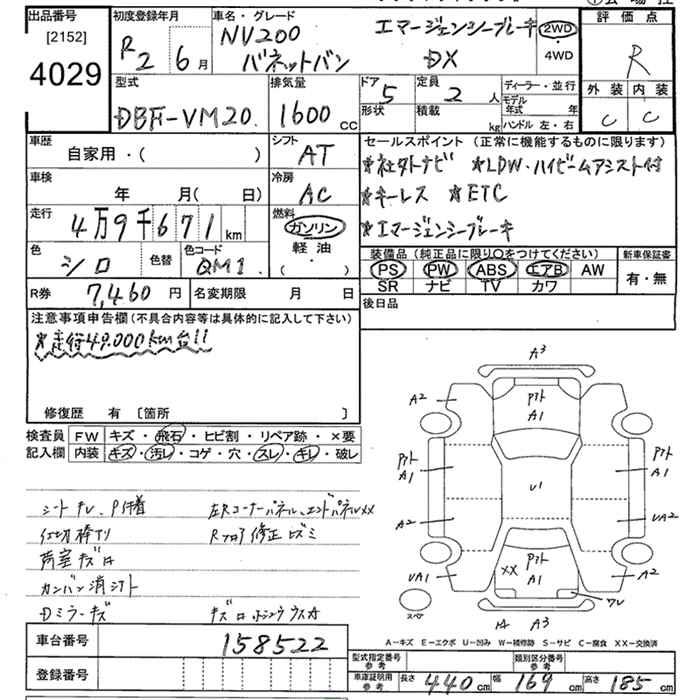 出品番号
[2152]
4029
初度登録年月
R2 6月
車名・グレード
NV200 エマージェンシーブレーキ
バネットバン DX
2WD
・
4WD
評価点
R
外装 内装
C C
型式
DBF-VM20
排気量
1600 cc
ドア 5
形状
定員 2 人
積載 kg
ディーラー・並行
モデル年式 年
ハンドル 左・右
車歴
自家用・( )
シフト AT
車検
年 月( 日)
冷房 AC
走行 4万9千671 km
燃料
ガソリン
軽油
( ・ )
色 シロ 色替 色コード QM1
R券 7,460円
名変期限 月 日
セールスポイント (正常に機能するものに限ります)
★社外ナビ ★LDW・ハイビームアシスト付
★キーレス ★ETC
★エマージェンシーブレーキ
装備品 (純正品に限り○をつけてください)
PS PW ABS エアB AW
SR ナビ TV カワ
新車保証書
有・無
後日品
注意事項申告欄(不具合内容等は具体的に記入して下さい)
★走行49,000km台!!
修復歴 有 [箇所 ]
検査員 FW キズ・飛石・ヒビ割・リペア跡・×要
記入欄 内装 キズ・汚レ・コゲ・穴・スレ・キレ・破レ
左Rコーナーパネル、エンドパネルXX
Rフロア修正
荷室キズ
カンバン消シアト
Dミラーキズ
A3
A2 アト A1
アト A1 U1 アト A1
A2 UA2
UA1 XX アト A1 A2
スペア A3
A-キズ E-エクボ U-凹み W-補修跡 S-サビ C-腐食 XX-交換済
車台番号 158522
登録番号
型式指定番号 参考
類別区分番号 参考
車庫証明用 参考 長さ 440 cm 幅 169 cm 高さ 185 cm